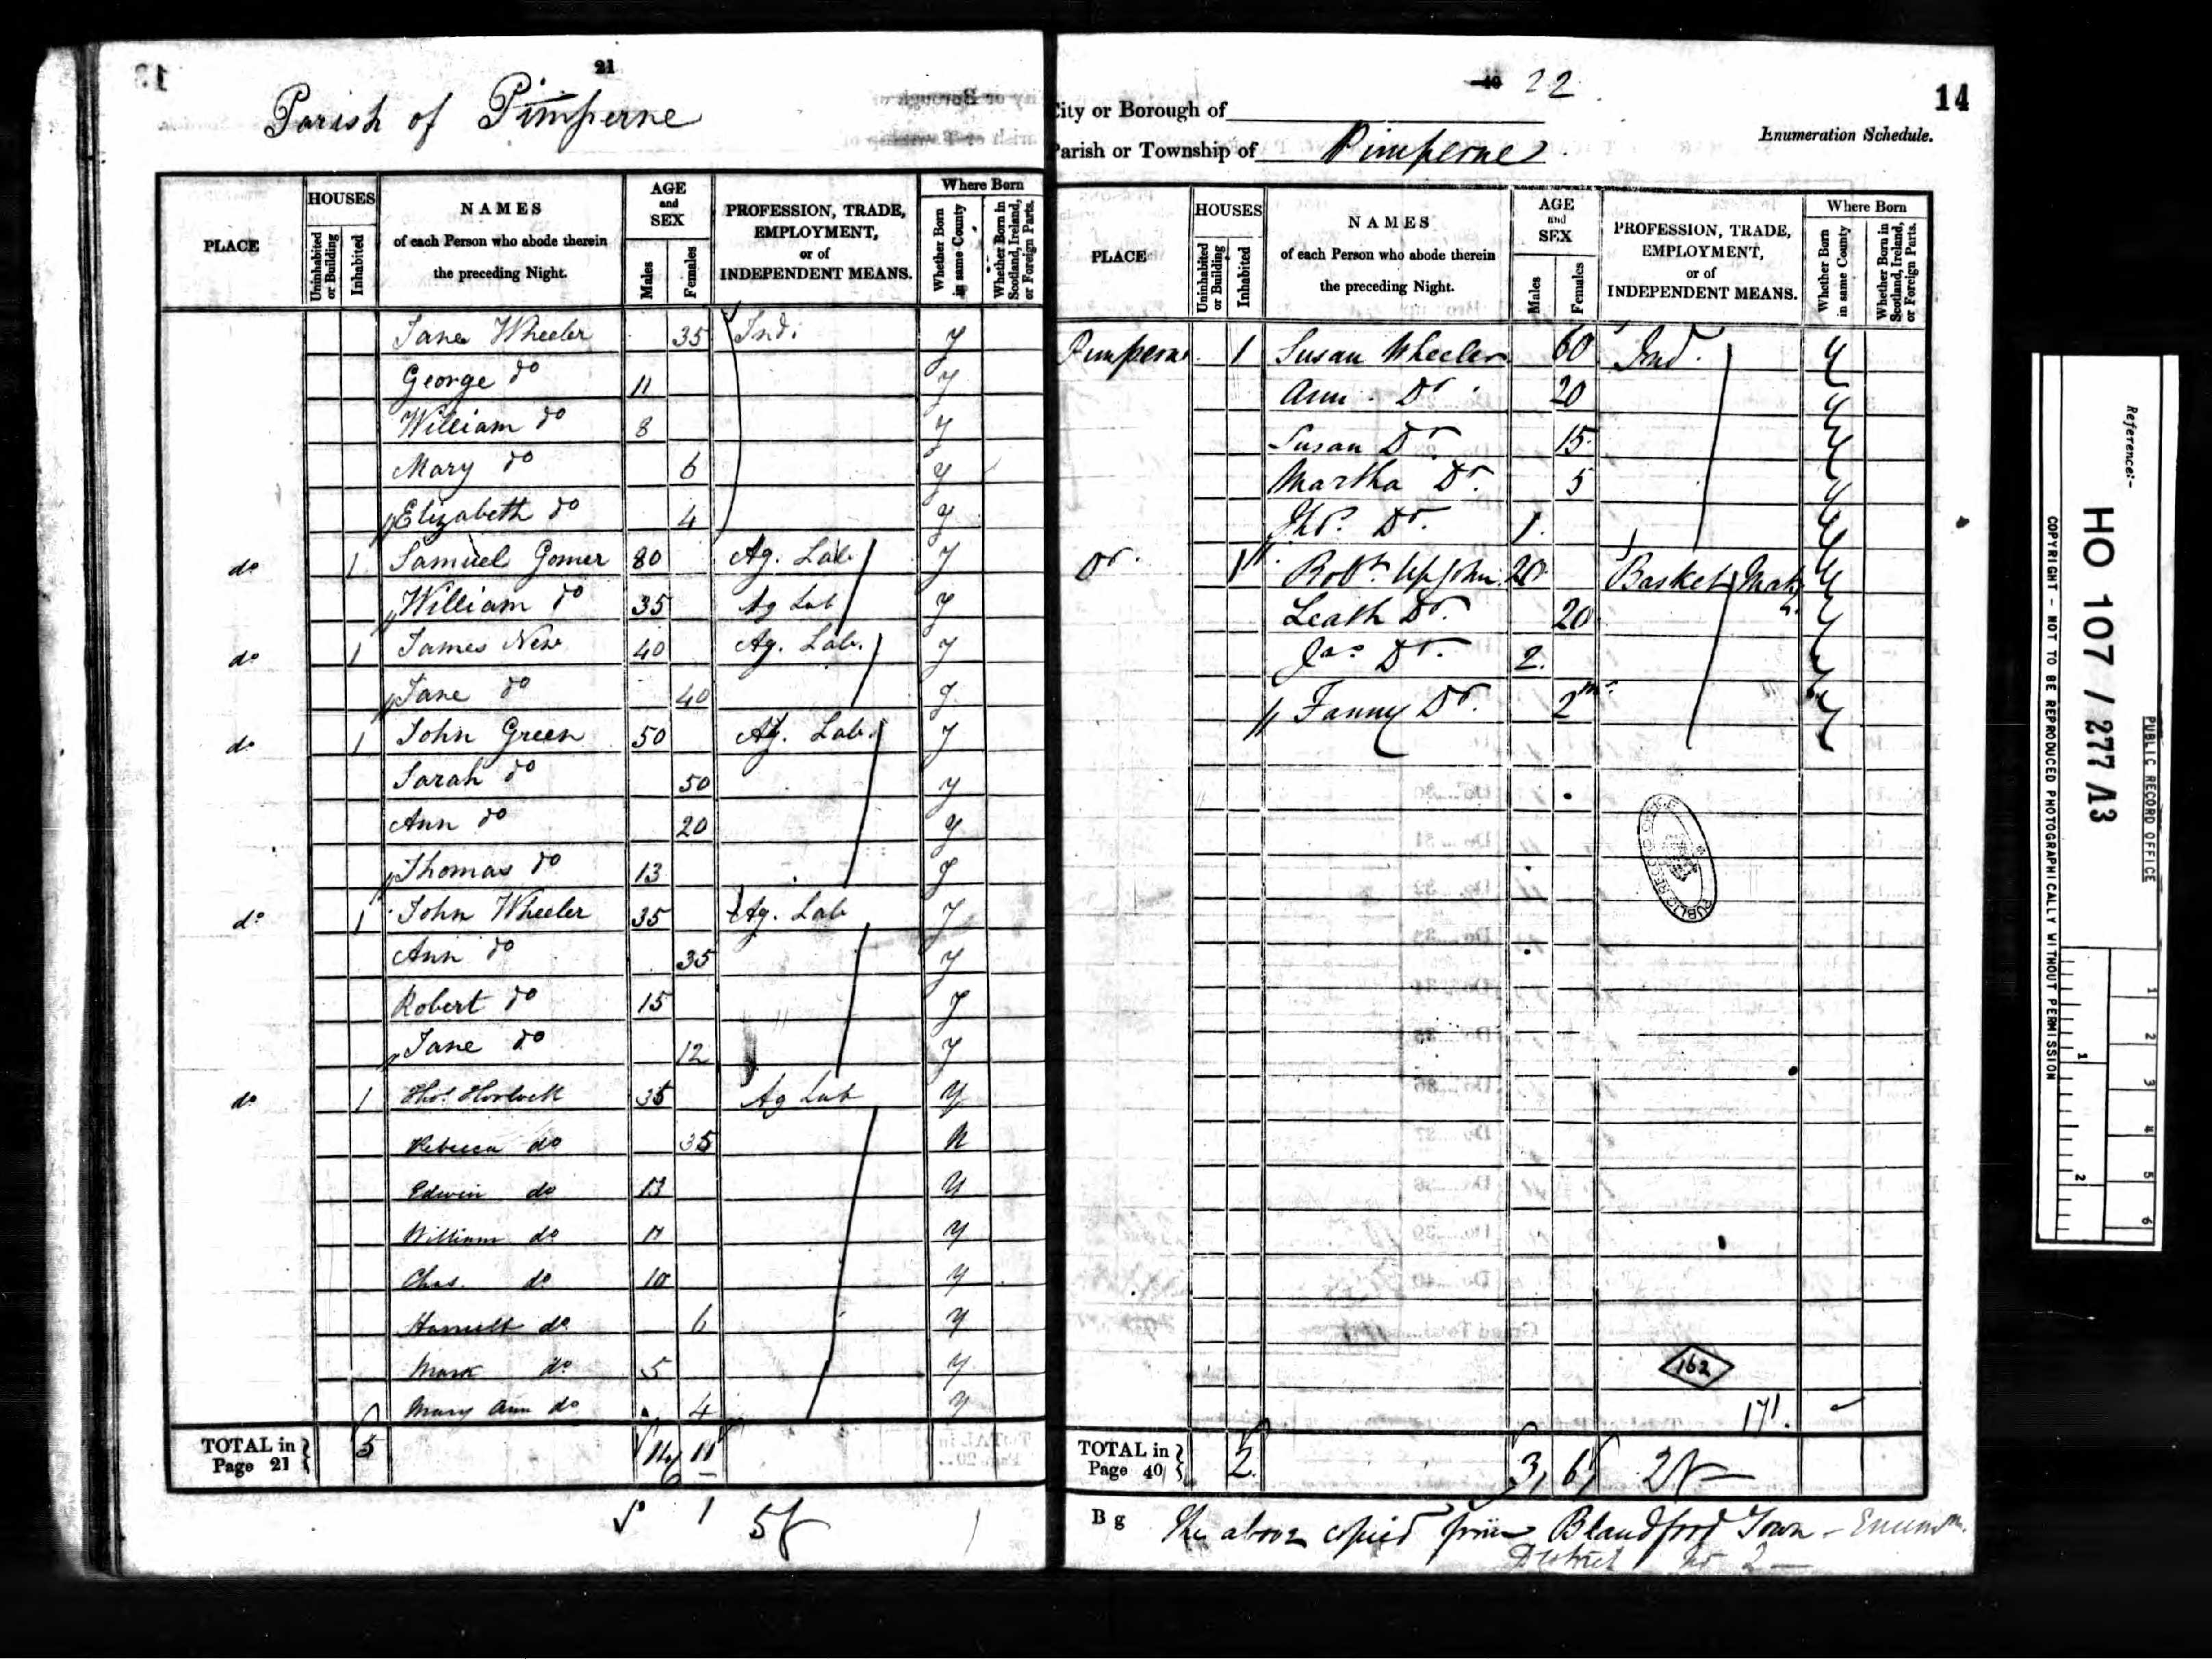 21
Parish of Pimperne
PLACE
HOUSES
Uninhabited or Building
Inhabited
NAMES
of each Person who abode therein
the preceding Night.
AGE
and
SEX
Males
Females
PROFESSION, TRADE,
EMPLOYMENT,
or of
INDEPENDENT MEANS.
Where Born
Whether Born in same County
Whether Born in Scotland, Ireland, or Foreign Parts.
Jane Wheeler 35 Ind. y
George do 11 y
William do 8 y
Mary do 6 y
Elizabeth do 4 y
do 1 Samuel Gomer 80 Ag. Lab. y
William do 35 Ag Lab y
do 1 James New 40 Ag. Lab. y
Jane do 40 y
do 1 John Green 50 Ag. Lab. y
Sarah do 50 y
Ann do 20 y
Thomas do 13 y
do 1 John Wheeler 35 Ag. Lab y
Ann do 35 y
Robert do 15 y
Jane do 12 y
do 1 Thos Horlock 35 Ag Lab y
Rebecca do 35 N
Edwin do 13 y
William do y
Chas. do 10 y
Harriett do 6 y
Mark do 5 y
Mary Ann do 4 y
TOTAL in Page 21 5 14 11
1 5
40 22
14
City or Borough of
Enumeration Schedule.
Parish or Township of Pimperne
PLACE
HOUSES
Uninhabited or Building
Inhabited
NAMES
of each Person who abode therein
the preceding Night.
AGE
and
SEX
Males
Females
PROFESSION, TRADE,
EMPLOYMENT,
or of
INDEPENDENT MEANS.
Where Born
Whether Born in same County
Whether Born in Scotland, Ireland, or Foreign Parts.
Pimperne 1 Susan Wheeler 60 Ind. y
Ann Do 20 y
Susan Do 15 y
Martha Do. 5 y
Thos. Do. 1 y
Do. 1 Robt. Upjohn 20 Basket Makr y
Leah Do. 20 y
Jas Do. 2 y
Fanny Do. 2 m. y
162
171.
TOTAL in Page 40 2 3 6 2
B g
The above copied from Blandford Town - Enumn.
District No 2 —
Reference:-
HO 107 / 277 /13
PUBLIC RECORD OFFICE
COPYRIGHT - NOT TO BE REPRODUCED PHOTOGRAPHICALLY WITHOUT PERMISSION
1
2
3
4
5
6
1
2